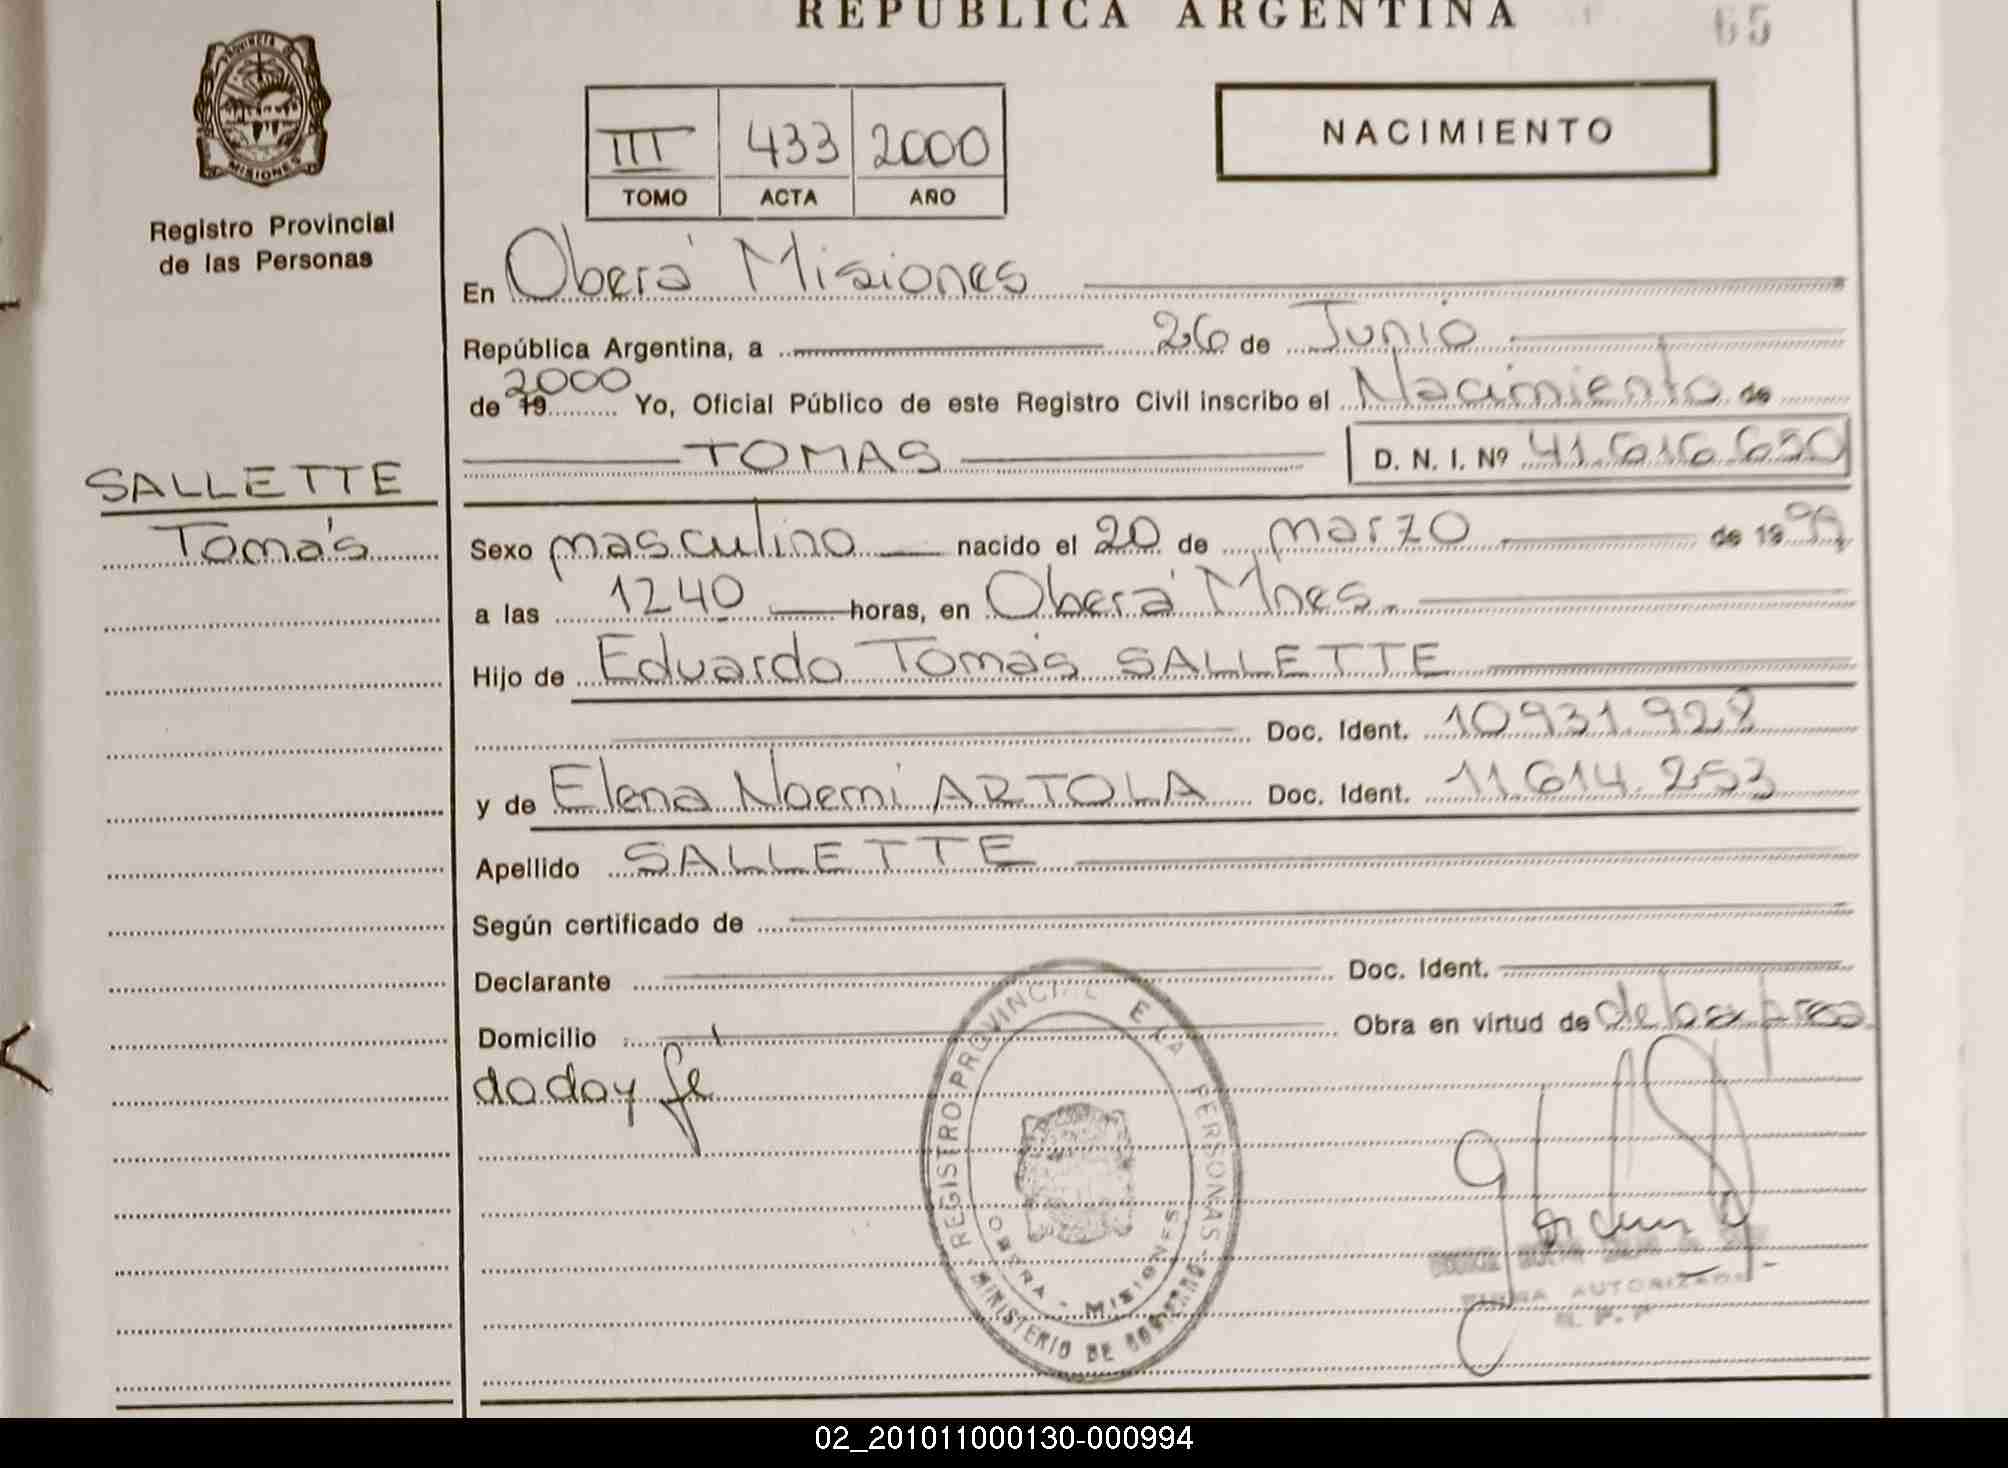 REPUBLICA ARGENTINA
65
PROVINCIA DE
MISIONES
Registro Provincial
de las Personas
III 433 2000
TOMO ACTA AÑO
NACIMIENTO
En Oberá Misiones
República Argentina, a 26 de Junio
de 19 2000 Yo, Oficial Público de este Registro Civil inscribo el Nacimiento de
TOMAS D. N. I. Nº 41.616.650
SALLETTE
Tomás
Sexo masculino nacido el 20 de marzo de 1999
a las 1240 horas, en Oberá Mnes.
Hijo de Eduardo Tomás SALLETTE
Doc. Ident. 10931.928
y de Elena Noemi ARTOLA Doc. Ident. 11.614.253
Apellido SALLETTE
Según certificado de
Declarante Doc. Ident.
Domicilio Obra en virtud de
do doy fé
REGISTRO PROVINCIAL DE LAS PERSONAS
OBERA - MISIONES
MINISTERIO DE GOBIERNO
AUTORIZADA
02_201011000130-000994